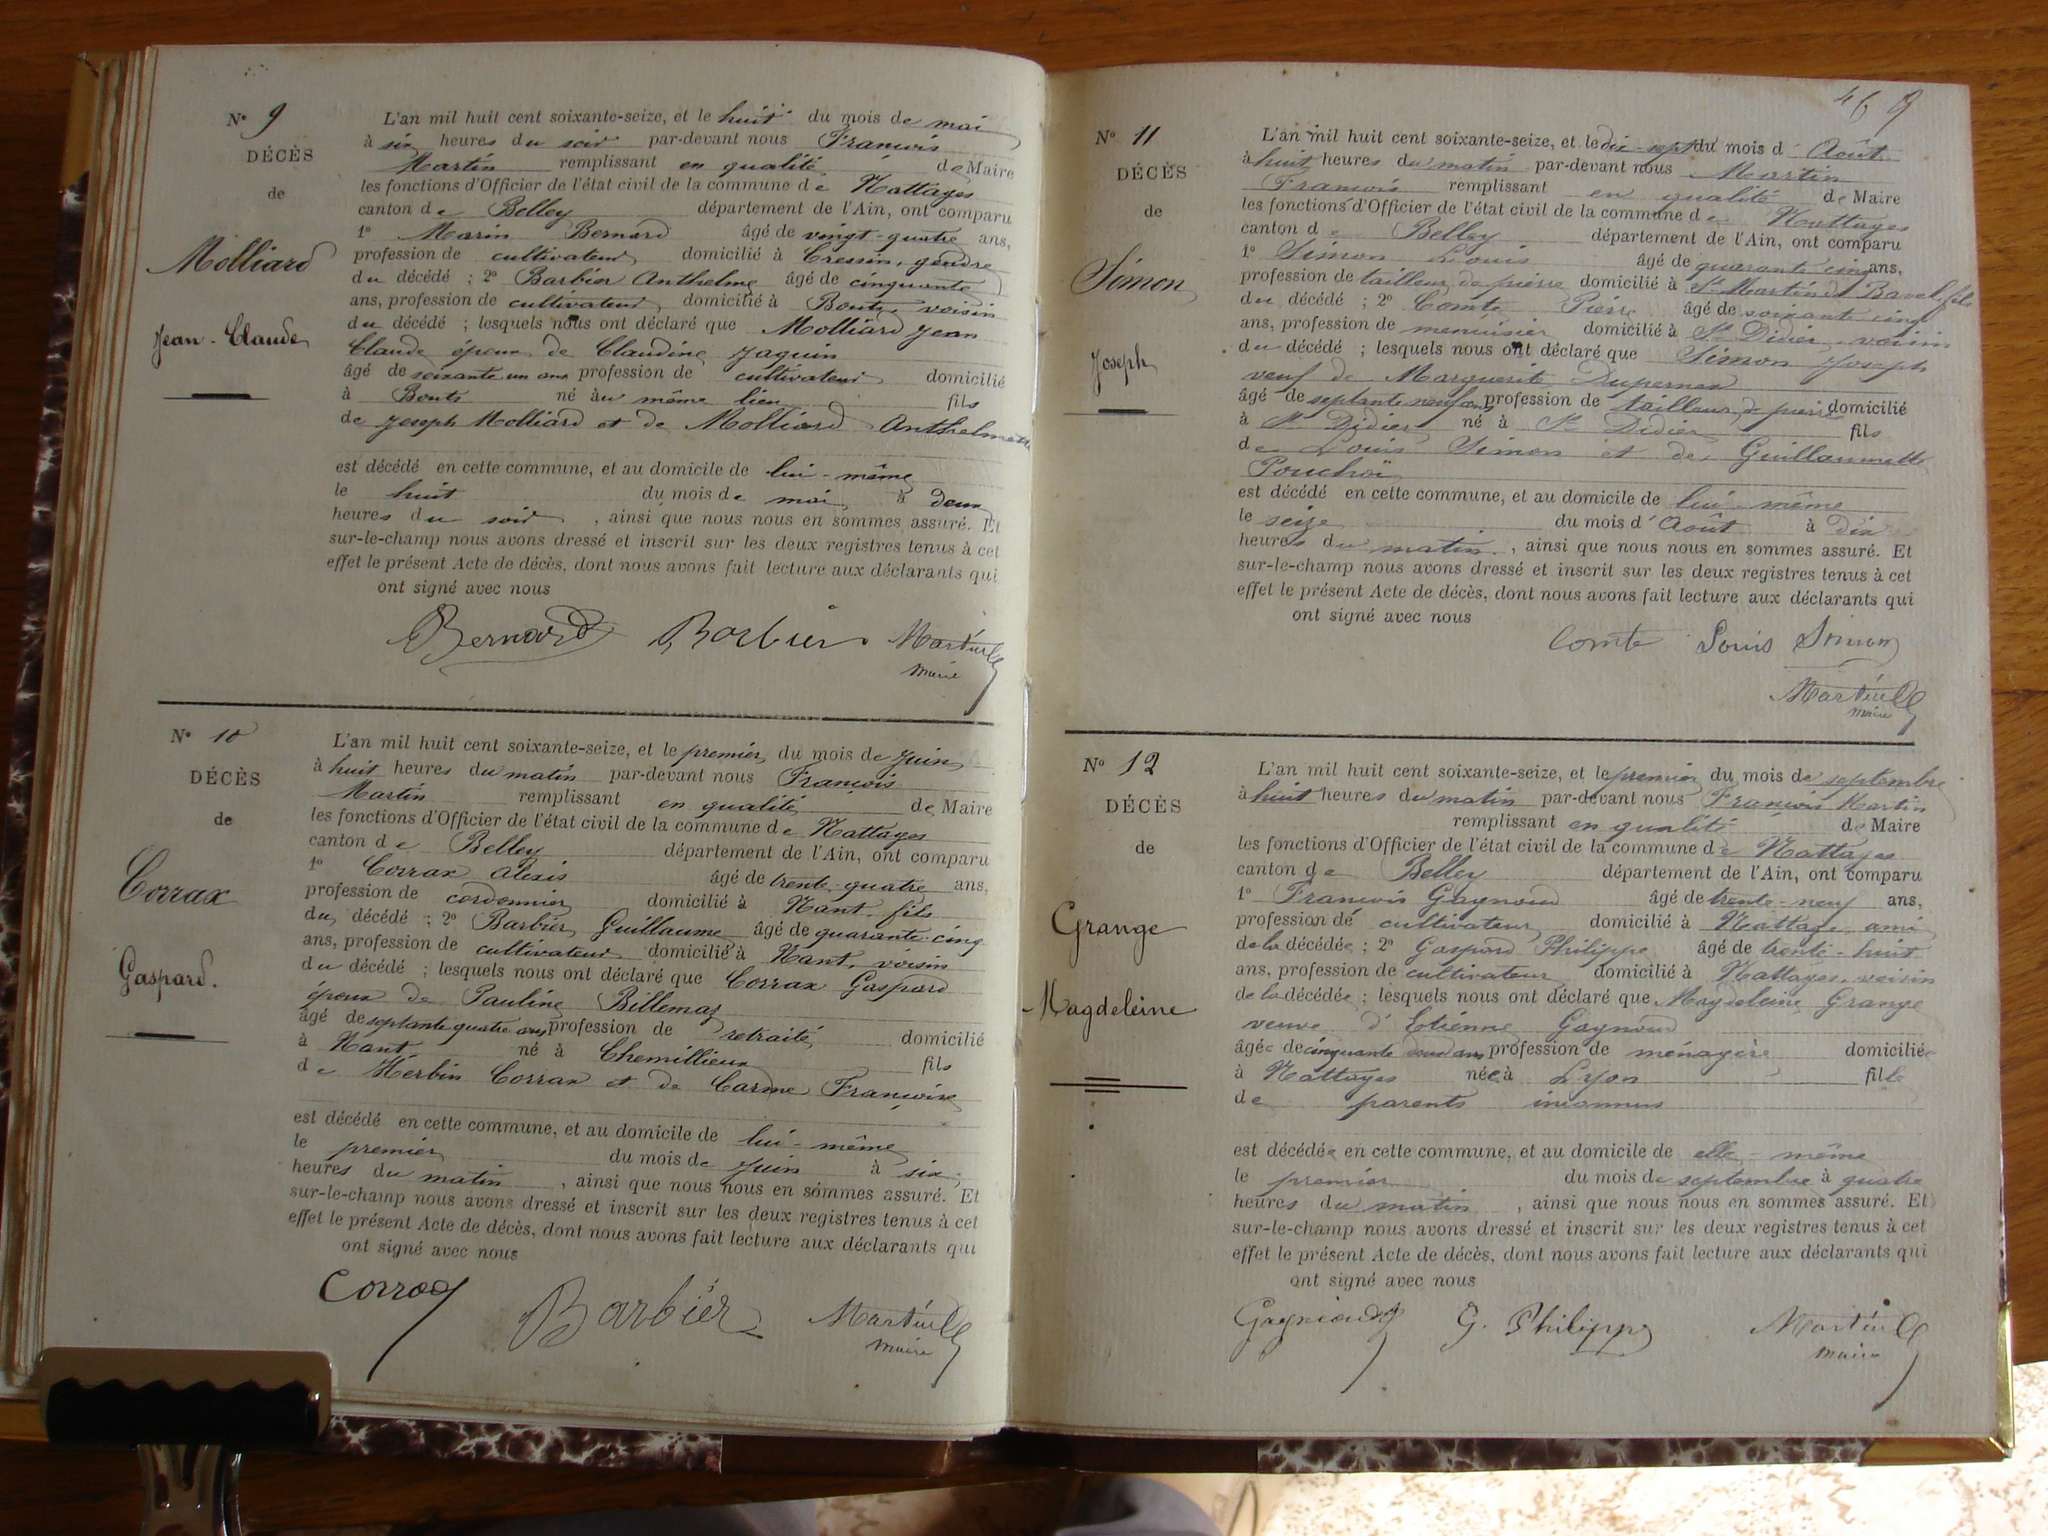 N° 9
DÉCÈS
de
Molliard
Jean-Claude
L'an mil huit cent soixante-seize, et le huit du mois de mai
à six heures du soir par-devant nous François
Martin remplissant en qualité de Maire
les fonctions d'Officier de l'état civil de la commune de Nattages
canton de Belley département de l'Ain, ont comparu
1° Marin Bernard âgé de vingt-quatre ans,
profession de cultivateur domicilié à Cressin, gendre
du décédé ; 2° Barbier Anthelme âgé de cinquante
ans, profession de cultivateur domicilié à Bouts, voisin
du décédé ; lesquels nous ont déclaré que Molliard Jean
Claude époux de Claudine Jaquin
âgé de soixante un ans profession de cultivateur domicilié
à Bouts né au même lieu fils
de Joseph Molliard et de Molliard Anthelmette
est décédé en cette commune, et au domicile de lui-même
le huit du mois de mai à deux
heures du soir, ainsi que nous nous en sommes assuré. Et
sur-le-champ nous avons dressé et inscrit sur les deux registres tenus à cet
effet le présent Acte de décès, dont nous avons fait lecture aux déclarants qui
ont signé avec nous
Bernard Barbier Martin
maire
N° 10
DÉCÈS
de
Corrax
Gaspard.
L'an mil huit cent soixante-seize, et le premier du mois de Juin
à huit heures du matin par-devant nous François
Martin remplissant en qualité de Maire
les fonctions d'Officier de l'état civil de la commune de Nattages
canton de Belley département de l'Ain, ont comparu
1° Corrax Alexis âgé de trente-quatre ans,
profession de cordonnier domicilié à Nant fils
du décédé ; 2° Barbier Guillaume âgé de quarante-cinq
ans, profession de cultivateur domicilié à Nant, voisin
du décédé ; lesquels nous ont déclaré que Corrax Gaspard
époux de Pauline Billemaz
âgé de septante quatre ans profession de retraité domicilié
à Nant né à Chemillieu fils
de Herbin Corrax et de Carme Françoise
est décédé en cette commune, et au domicile de lui-même
le premier du mois de Juin à six
heures du matin, ainsi que nous nous en sommes assuré. Et
sur-le-champ nous avons dressé et inscrit sur les deux registres tenus à cet
effet le présent Acte de décès, dont nous avons fait lecture aux déclarants qui
ont signé avec nous
Corrax Barbier Martin
maire
46 9
N° 11
DÉCÈS
de
Simon
Joseph
L'an mil huit cent soixante-seize, et le dix-sept du mois d'Août
à huit heures du matin par-devant nous Martin
François remplissant en qualité de Maire
les fonctions d'Officier de l'état civil de la commune de Nattages
canton de Belley département de l'Ain, ont comparu
1° Simon Louis âgé de quarante cinq ans,
profession de tailleur de pierre domicilié à St Martin de Bavel, fils
du décédé ; 2° Comte Pierre âgé de soixante cinq
ans, profession de menuisier domicilié à St Didier, voisin
du décédé ; lesquels nous ont déclaré que Simon Joseph
veuf de Marguerite Dupernex
âgé de septante neuf ans profession de tailleur de pierre domicilié
à St Didier né à St Didier fils
de Louis Simon et de Guillaumette
Pouchoi
est décédé en cette commune, et au domicile de lui-même
le seize du mois d'Août à dix
heures du matin, ainsi que nous nous en sommes assuré. Et
sur-le-champ nous avons dressé et inscrit sur les deux registres tenus à cet
effet le présent Acte de décès, dont nous avons fait lecture aux déclarants qui
ont signé avec nous
Comte Louis Simon
Martin
maire
N° 12
DÉCÈS
de
Grange
Magdeleine
L'an mil huit cent soixante-seize, et le premier du mois de septembre
à huit heures du matin par-devant nous François Martin
remplissant en qualité de Maire
les fonctions d'Officier de l'état civil de la commune de Nattages
canton de Belley département de l'Ain, ont comparu
1° François Gagnoud âgé de trente-neuf ans,
profession de cultivateur domicilié à Nattages ami
de la décédée ; 2° Gaspard Philippe âgé de trente-huit
ans, profession de cultivateur domicilié à Nattages, voisin
de la décédée ; lesquels nous ont déclaré que Magdeleine Grange
veuve d'Etienne Gagnoud
âgée de cinquante deux ans profession de ménagère domiciliée
à Nattages née à Lyon fille
de parents inconnus
est décédée en cette commune, et au domicile de elle-même
le premier du mois de septembre à quatre
heures du matin, ainsi que nous nous en sommes assuré. Et
sur-le-champ nous avons dressé et inscrit sur les deux registres tenus à cet
effet le présent Acte de décès, dont nous avons fait lecture aux déclarants qui
ont signé avec nous
Gagnioud G. Philippe Martin
maire